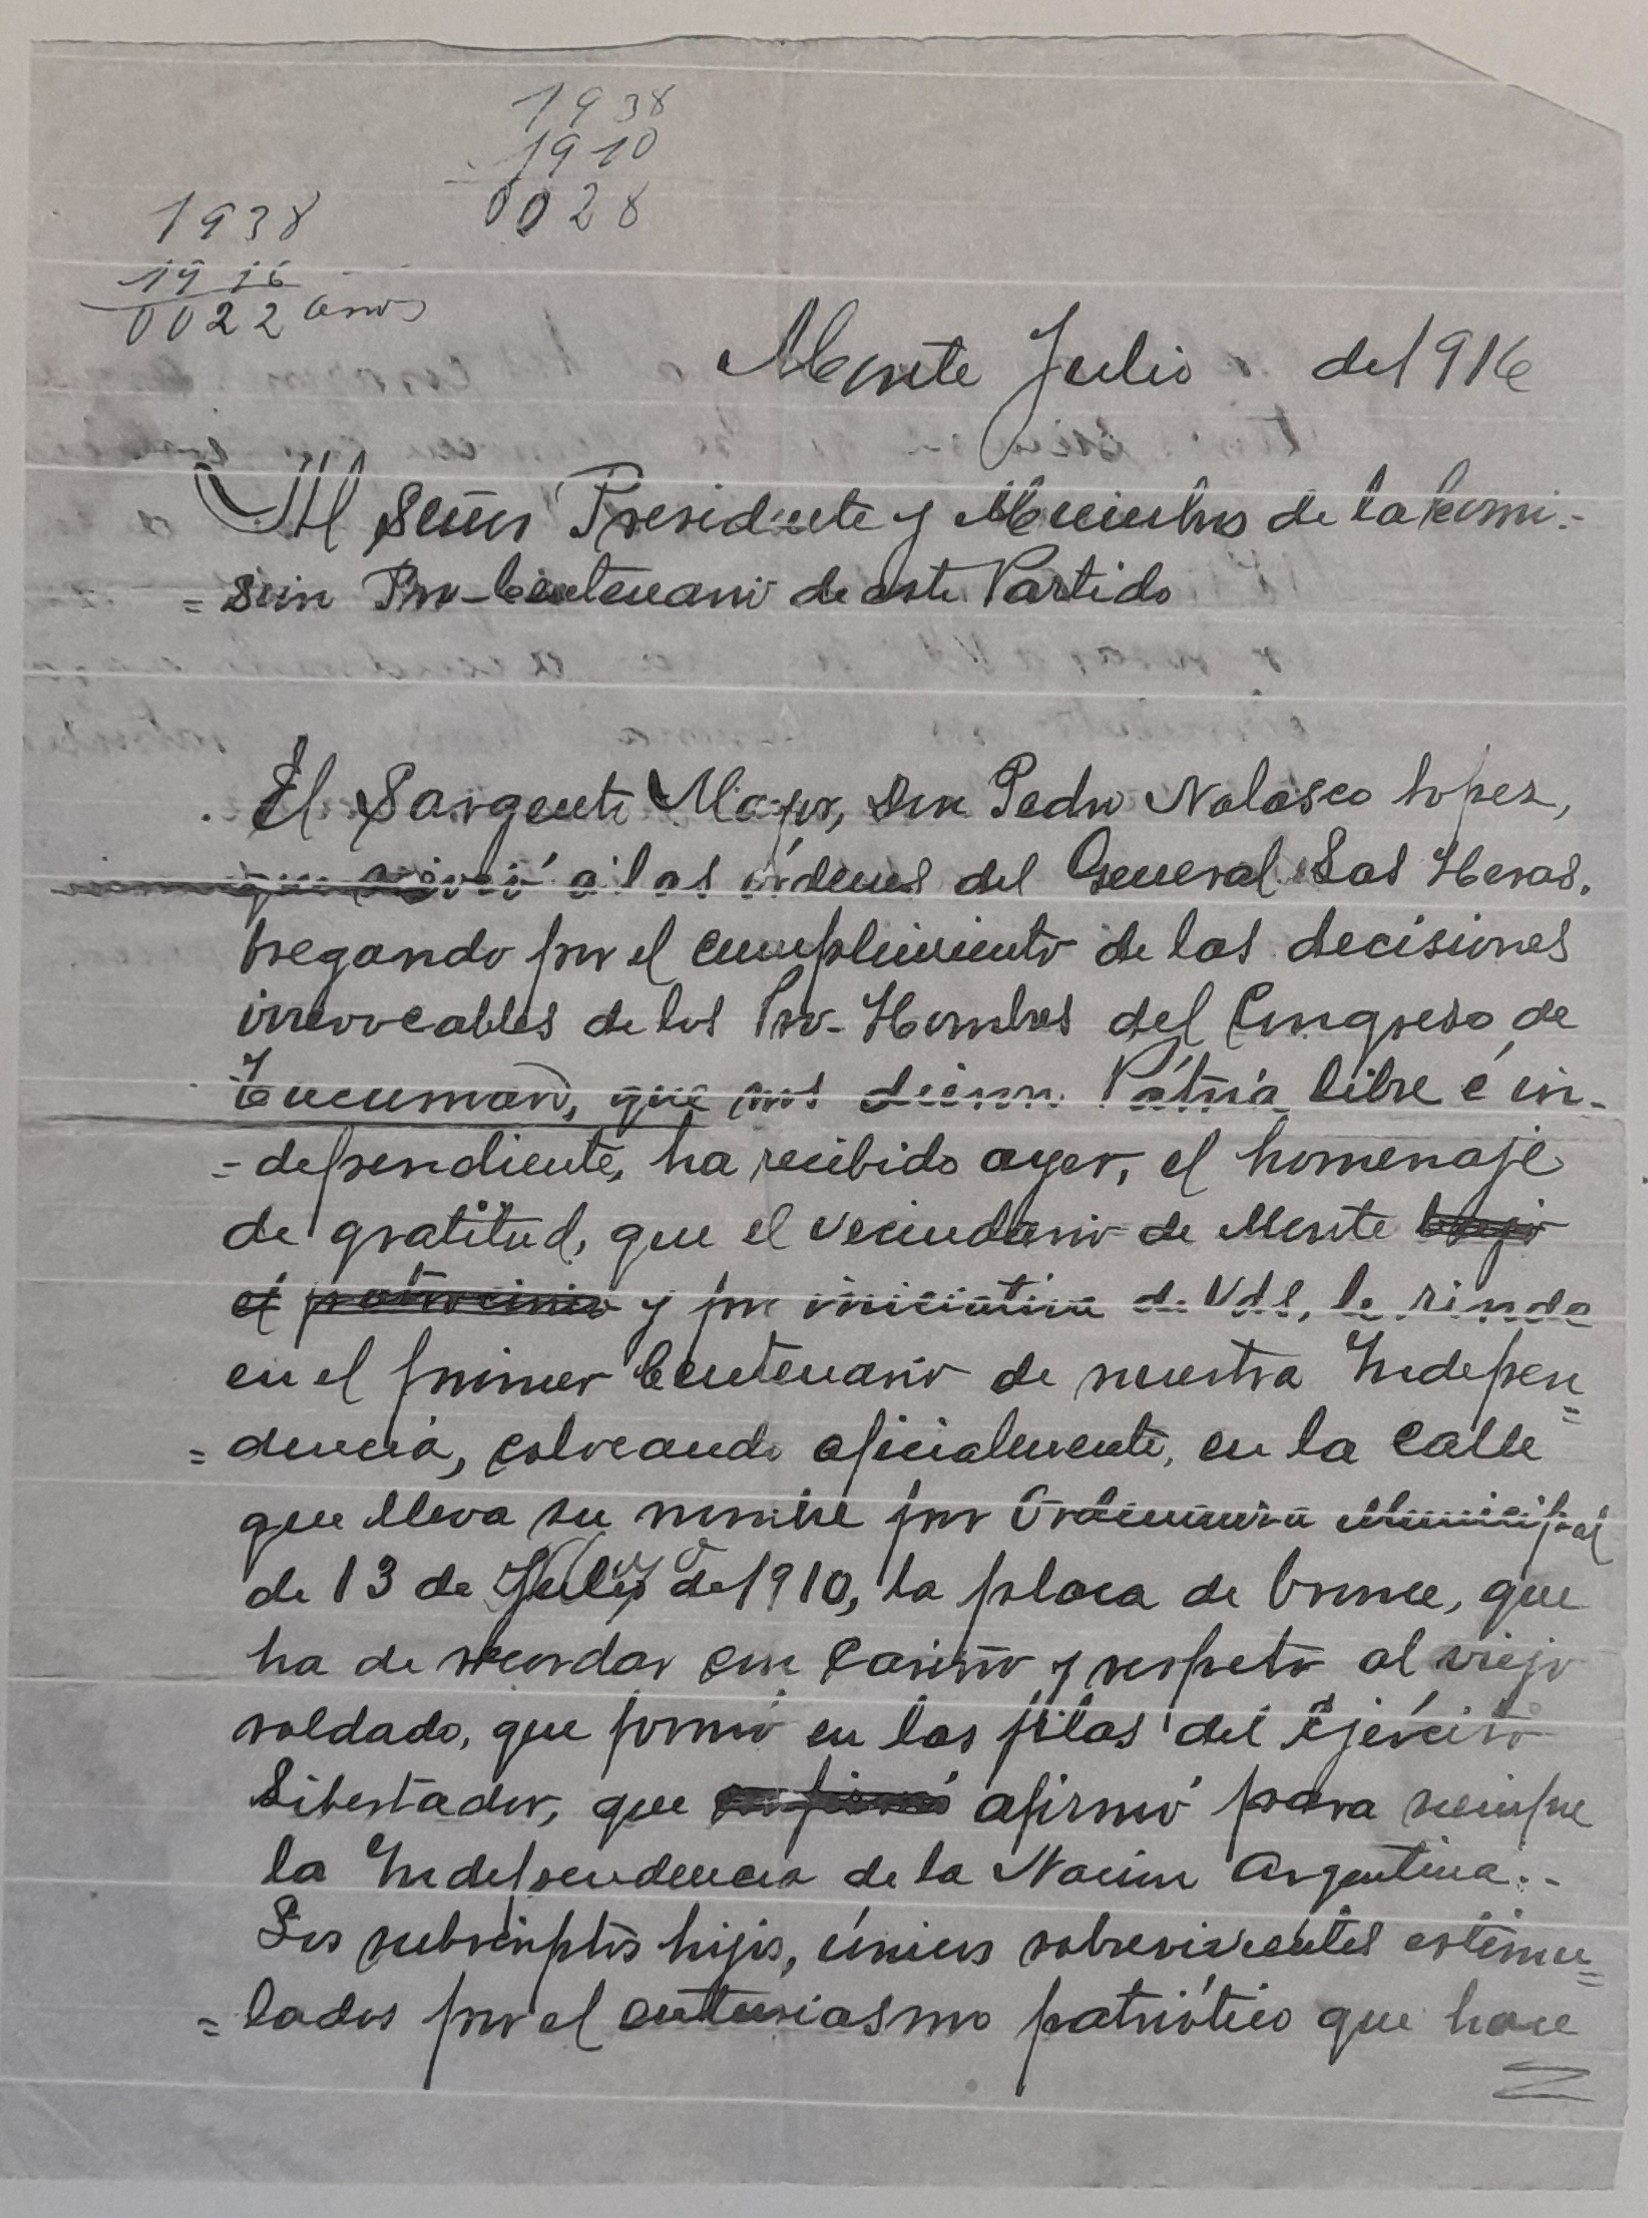 1938
1910
0028
1938
1916
0022 años
Monte Julio de 1916
Al Señor Presidente y Miembros de la Comi-
=sion Pro-Centenario de este Partido
El Sargento Mayor, Don Pedro Nolasco Lopez,
que sirvió a las órdenes del General Las Heras,
bregando por el cumplimiento de las decisiones
irrevocables de los Pro-Hombres del Congreso de
Tucuman, que nos dieron Pátria libre é in-
=dependiente, ha recibido ayer, el homenaje
de gratitud, que el vecindario de Monte bajo
el patrocinio y por iniciativa de Vds, le rinde
en el primer Centenario de nuestra Indepen=
=dencia, colocando oficialmente, en la Calle
que lleva su nombre por Ordenanza Municipal
de 13 de de 1910, la placa de bronce, que
ha de recordar con Cariño y respeto al viejo
soldado, que formó en las filas del Ejército
Libertador, que afirmó para siempre
la Independencia de la Nacion Argentina.-
Los subscriptos hijos, únicos sobrevivientes estimu=
=lados por el entusiasmo patriótico que hace